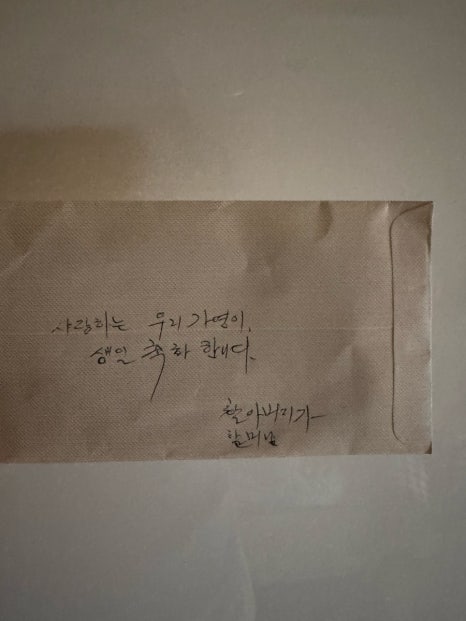 사랑하는 우리 가연이,
생일 축하 합니다.
할아버지가
할머님